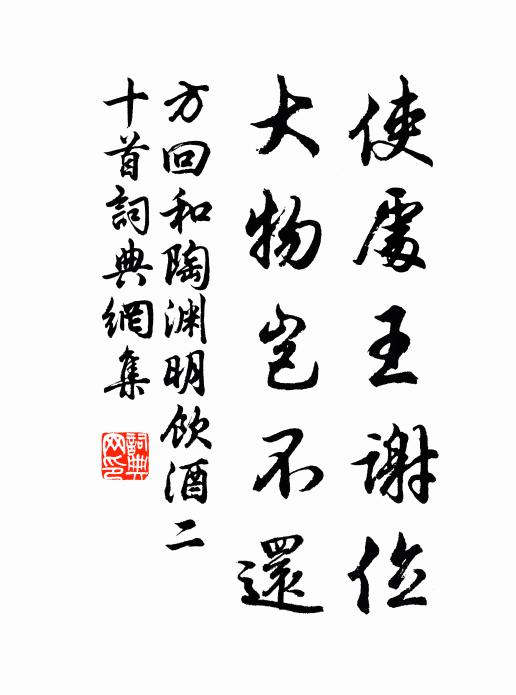 使處王謝位
大物豈不還
方回和陶淵明飲酒二
十首詞典網集
詞典
网印